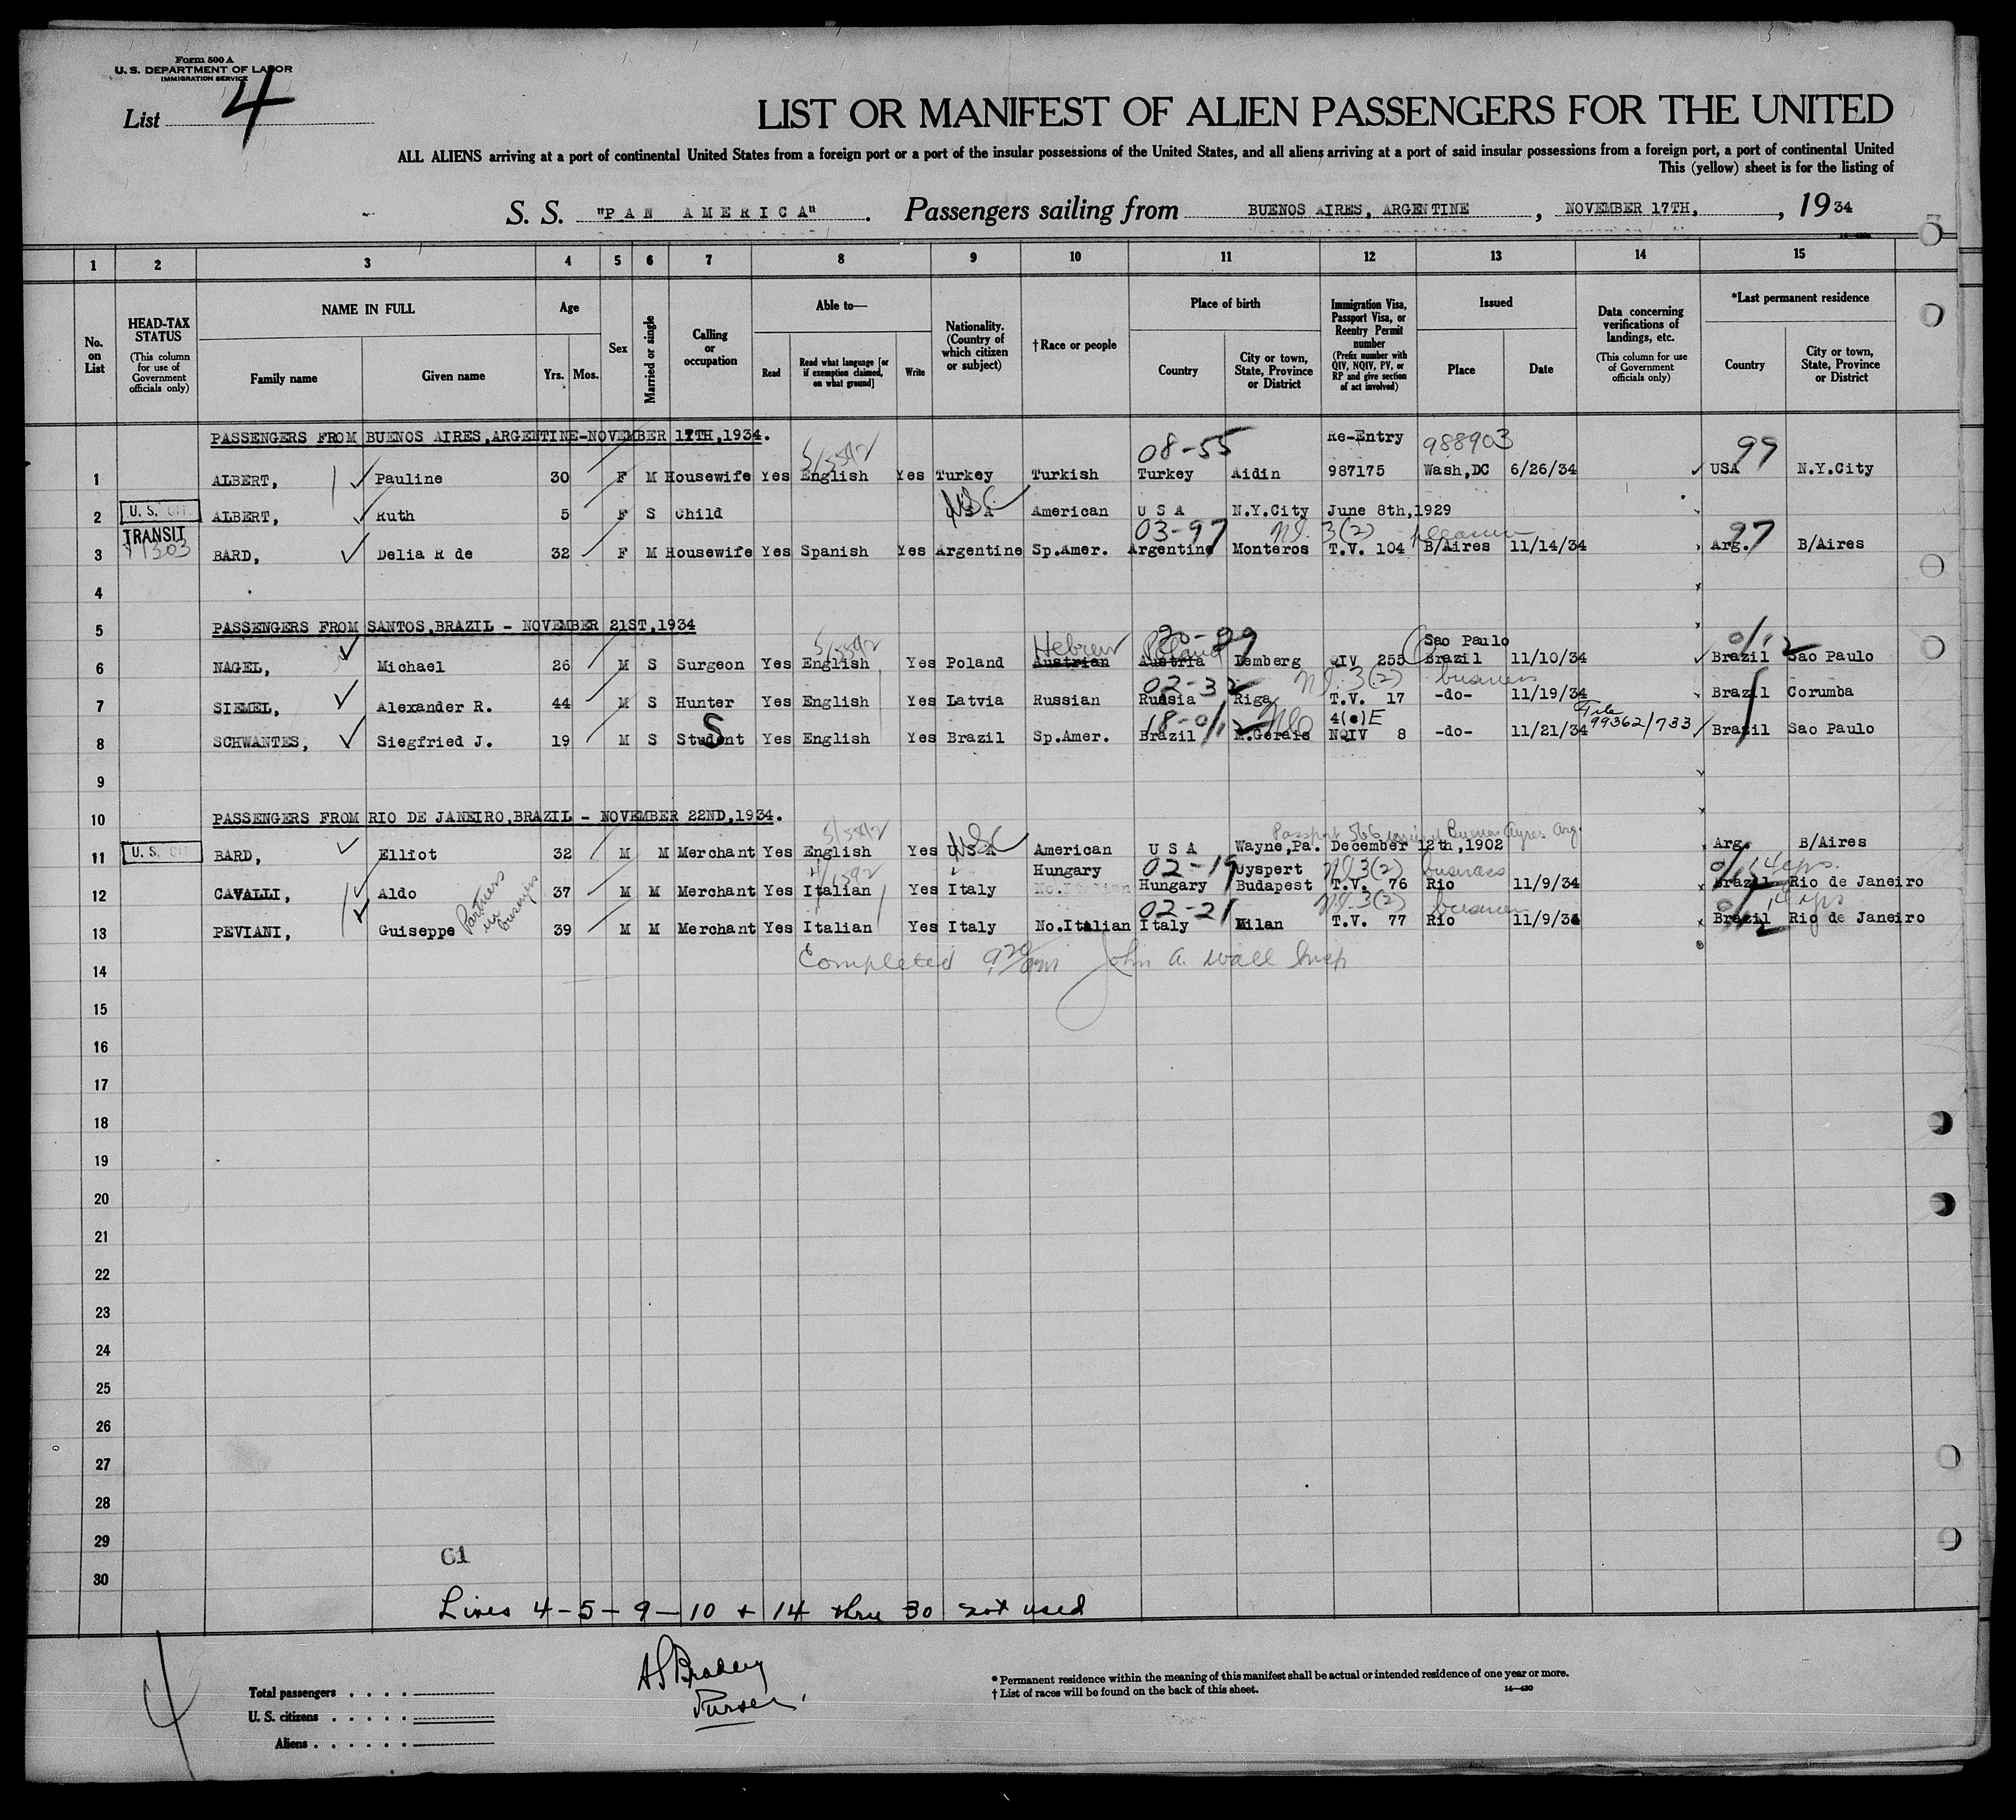 Form 500 A
U. S. DEPARTMENT OF LABOR
IMMIGRATION SERVICE
List 4
LIST OR MANIFEST OF ALIEN PASSENGERS FOR THE UNITED
ALL ALIENS arriving at a port of continental United States from a foreign port or a port of the insular possessions of the United States, and all aliens arriving at a port of said insular possessions from a foreign port, a port of continental United
This (yellow) sheet is for the listing of
S. S. "PAN AMERICA" . Passengers sailing from BUENOS AIRES, ARGENTINE , NOVEMBER 17TH, , 1934
3
1 2 3 4 5 6 7 8 9 10 11 12 13 14 15
No. on List
HEAD-TAX STATUS (This column for use of Government officials only)
NAME IN FULL Family name Given name
Age Yrs. Mos.
Sex
Married or single
Calling or occupation
Able to— Read Read what language [or if exemption claimed, on what ground] Write
Nationality. (Country of which citizen or subject)
†Race or people
Place of birth Country City or town, State, Province or District
Immigration Visa, Passport Visa, or Reentry Permit number (Prefix number with QIV, NQIV, PV, or RP and give section of act involved)
Issued Place Date
Data concerning verifications of landings, etc. (This column for use of Government officials only)
*Last permanent residence Country City or town, State, Province or District
PASSENGERS FROM BUENOS AIRES,ARGENTINE-NOVEMBER 17TH,1934.
5/5592 08-55 Re-Entry 988903 99
1 ALBERT, Pauline 30 F M Housewife Yes English Yes Turkey Turkish Turkey Aidin 987175 Wash,DC 6/26/34 USA N.Y.City
U. S. CIT. USC
2 ALBERT, Ruth 5 F S Child USA American U S A N.Y.City June 8th,1929
TRANSIT 03-97 3(2) pleasure 97
3 BARD, Delia R de 32 F M Housewife Yes Spanish Yes Argentine Sp.Amer. Argentine Monteros T.V. 104 B/Aires 11/14/34 Arg. B/Aires
4
5 PASSENGERS FROM SANTOS,BRAZIL - NOVEMBER 21ST,1934
5/5592 Hebrew Poland Sao Paulo 01 2
6 NAGEL, Michael 26 M S Surgeon Yes English Yes Poland Austrian Austria Lemberg QIV 255 Brazil 11/10/34 Brazil Sao Paulo
02-32 3(2) business
7 SIEMEL, Alexander R. 44 M S Hunter Yes English Yes Latvia Russian Russia Riga T.V. 17 -do- 11/19/34 Brazil Corumba
S 18-01 4(e)E File 99362/733
8 SCHWANTES, Siegfried J. 19 M S Student Yes English Yes Brazil Sp.Amer. Brazil M.Gerais NQIV 8 -do- 11/21/34 Brazil Sao Paulo
9
10 PASSENGERS FROM RIO DE JANEIRO,BRAZIL - NOVEMBER 22ND,1934.
U. S. CIT. 5/5592 USC Passport 566 issued Buenos Ayres Arg.
11 BARD, Elliot 32 M M Merchant Yes English Yes USA American U S A Wayne,Pa. December 12th,1902 Arg. B/Aires
Hungary 02-19 Uyspert 3(2) business
12 CAVALLI, Aldo 37 M M Merchant Yes Italian Yes Italy No.Italian Hungary Budapest T.V. 76 Rio 11/9/34 Brazil Rio de Janeiro
Partners in busyns
02-21 3(2) business
13 PEVIANI, Guiseppe 39 M M Merchant Yes Italian Yes Italy No.Italian Italy Milan T.V. 77 Rio 11/9/34 Brazil Rio de Janeiro
14 Completed 9 20 am John A. Wall Insp
15
16
17
18
19
20
21
22
23
24
25
26
27
28
29
61
30
Lines 4-5-9-10 + 14 thru 30 not used
4
Total passengers
U. S. citizens
Aliens
Purser
* Permanent residence within the meaning of this manifest shall be actual or intended residence of one year or more.
† List of races will be found on the back of this sheet.
14—430